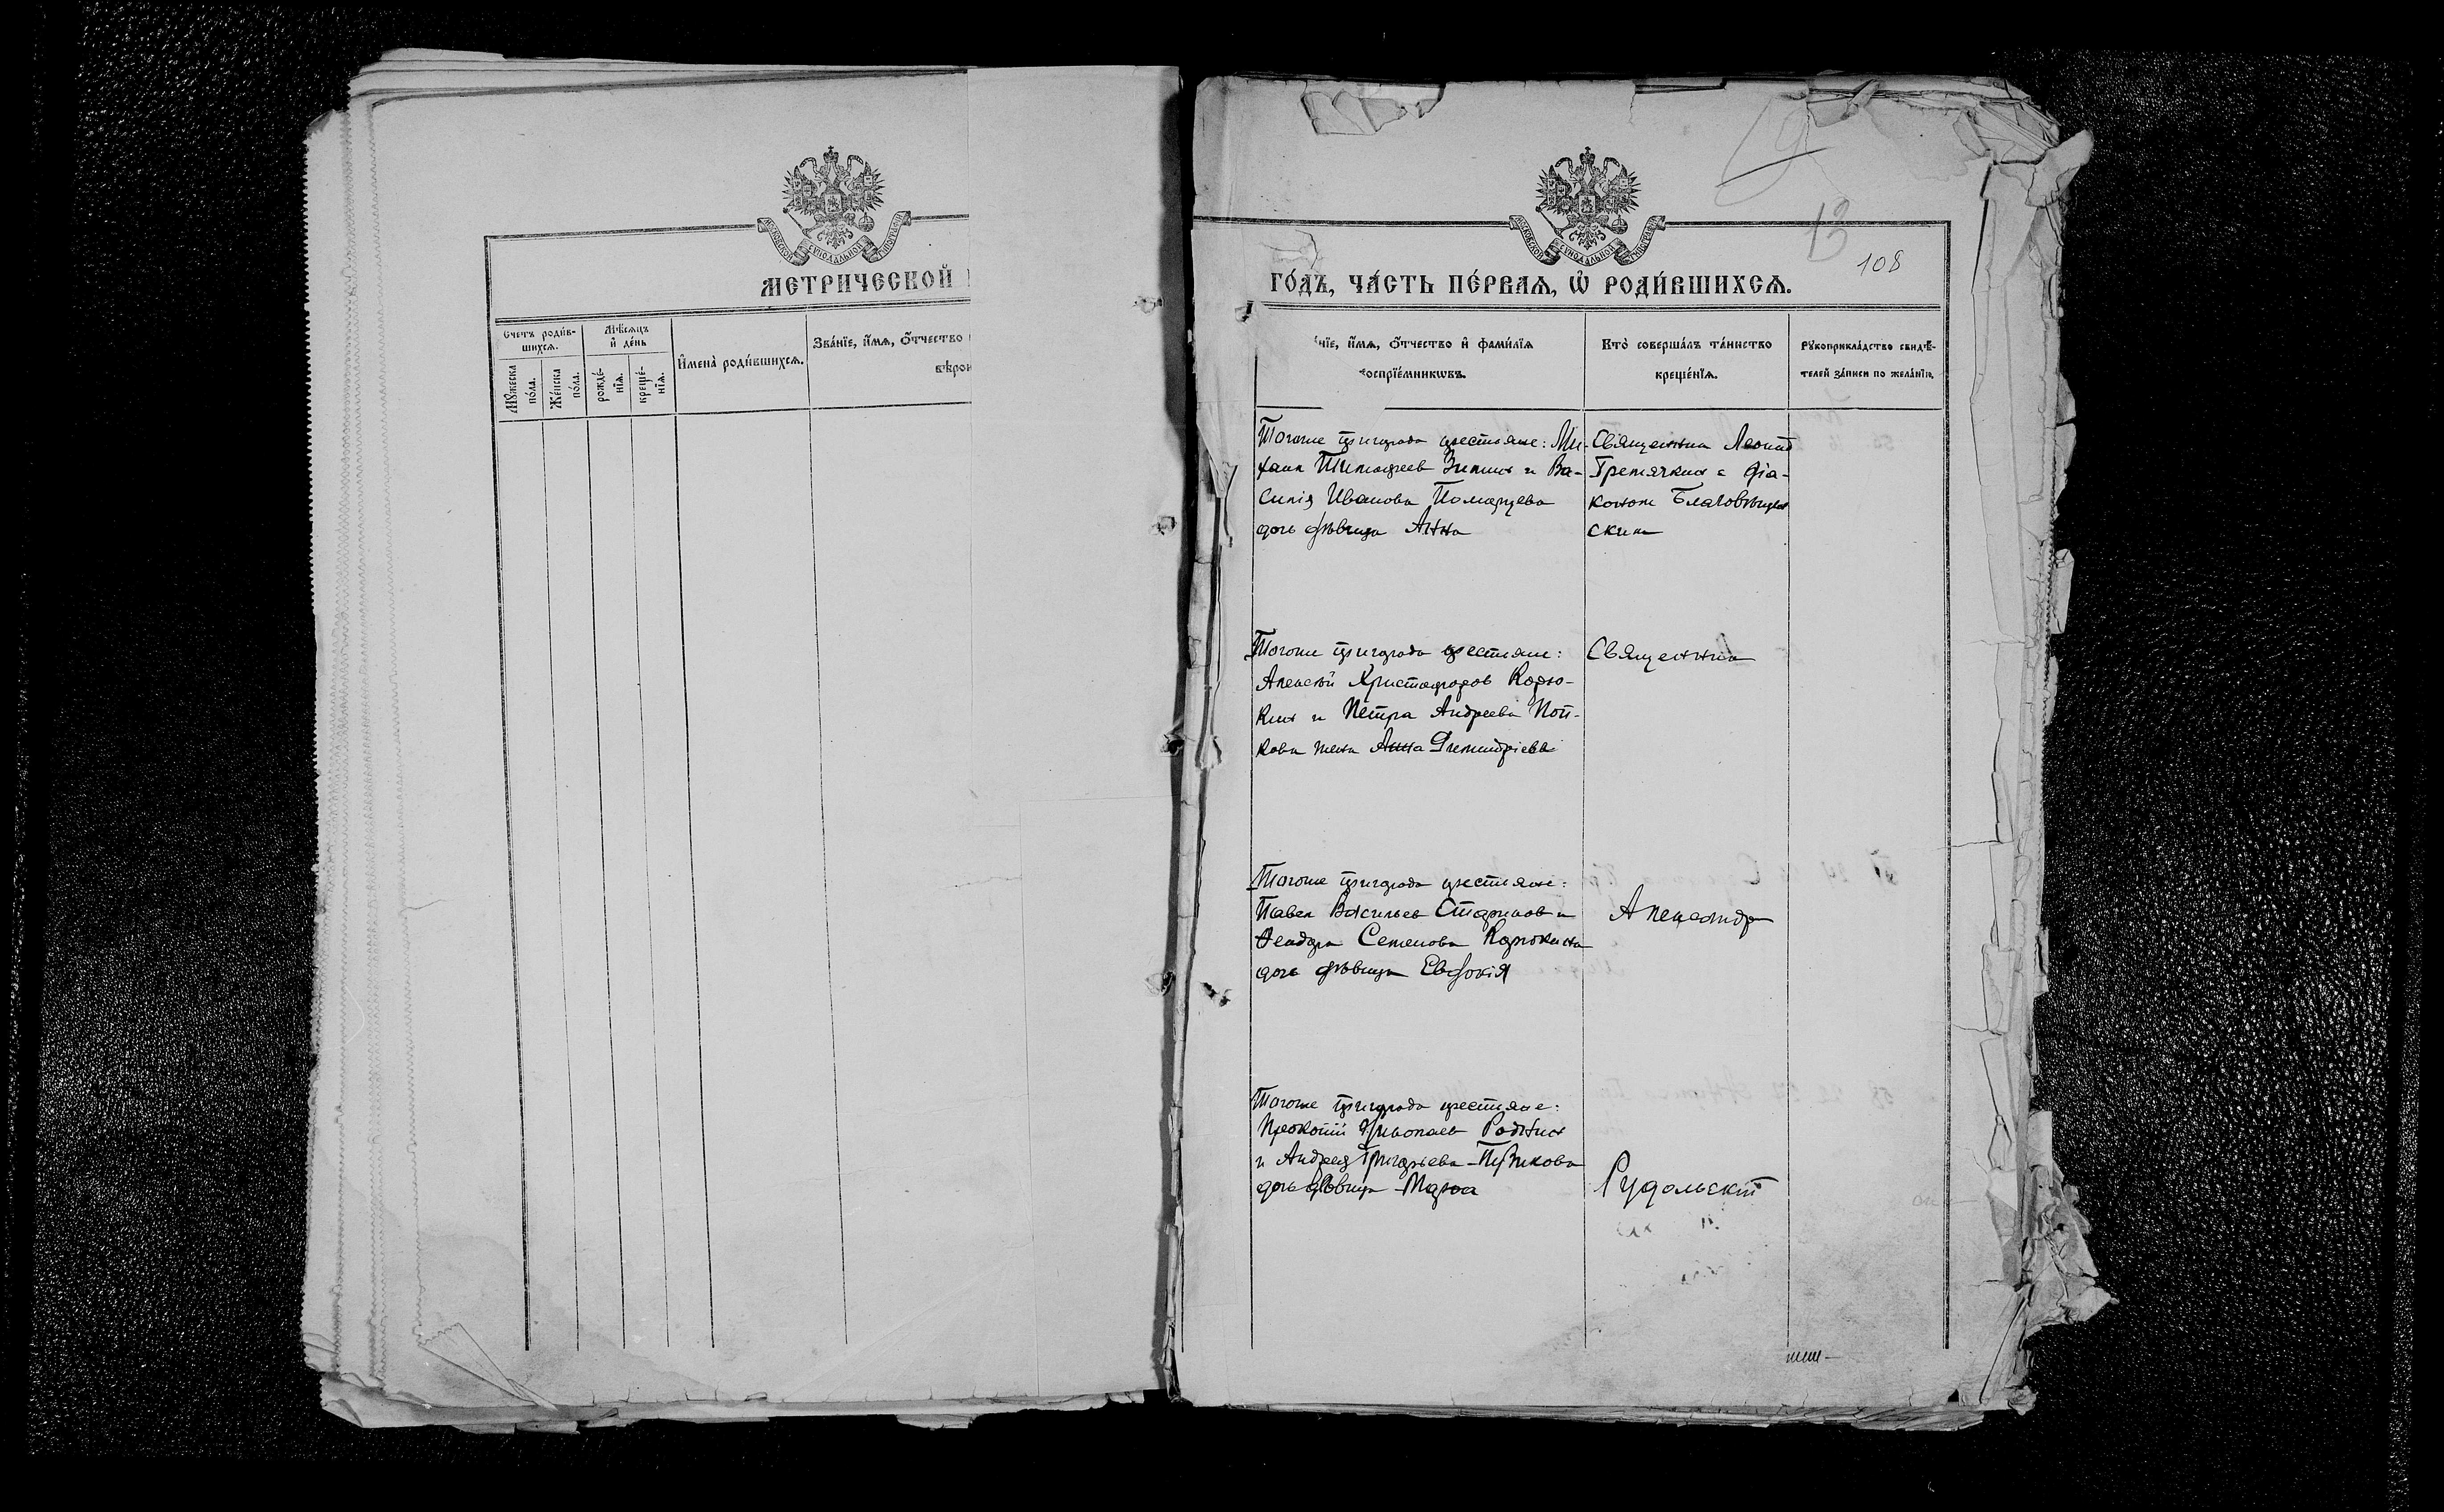 МОСКОВСКОЙ СѴНОДАЛЬНОЙ ТИПОГРАФІИ
МЕТРИЧЕСКОЙ
Счетъ роди́в-
шихсѧ.
Мѣ́сѧцъ
и҆ де́нь
Мꙋ́жеска
по́ла.
Же́нска
по́ла.
рожде́-
нїѧ.
креще́-
нїѧ.
И҆мена̀ роди́вшихсѧ.
Зва́нїе, и҆́мѧ, ѻ҆́тчество
МОСКОВСКОЙ СѴНОДАЛЬНОЙ ТИПОГРАФІИ
13
108
ГО́ДЪ, ЧА́СТЬ ПЕ́РВАѦ, Ѡ҆ РОДИ́ВШИХСѦ.
нїе, и҆́мѧ, ѻ҆́тчество и҆ фами́лїѧ
воспрїе́мникѡвъ.
Кто̀ соверша́лъ та́инство
креще́нїѧ.
Рꙋкоприкла́дство свидѣ́-
телей за́писи по жела́нїю.
Тогоже пригорода крестьяне: Ми-
хаил Тимофеев Зимин и Ва-
силія Иванова Помарцева
дочь дѣвица Анна
Священник Леонид
Гремячкин с діа-
коном Благовѣщен
ским
Тогоже пригорода крестьяне:
Алексѣй Христофоров Корю-
кин и Петра Андреева Поп-
кова жена Анна Димитріева
Священник
Тогоже пригорода крестьяне:
Павел Васильев Стариков и
Феодора Семенова Карюкина
дочь дѣвица Евдокія
Александр
Тогоже пригорода крестьяне:
Прокопій Николаев Роднин
и Андрея Григорьева Пузикова
дочь дѣвица Марѳа
Рудольскій